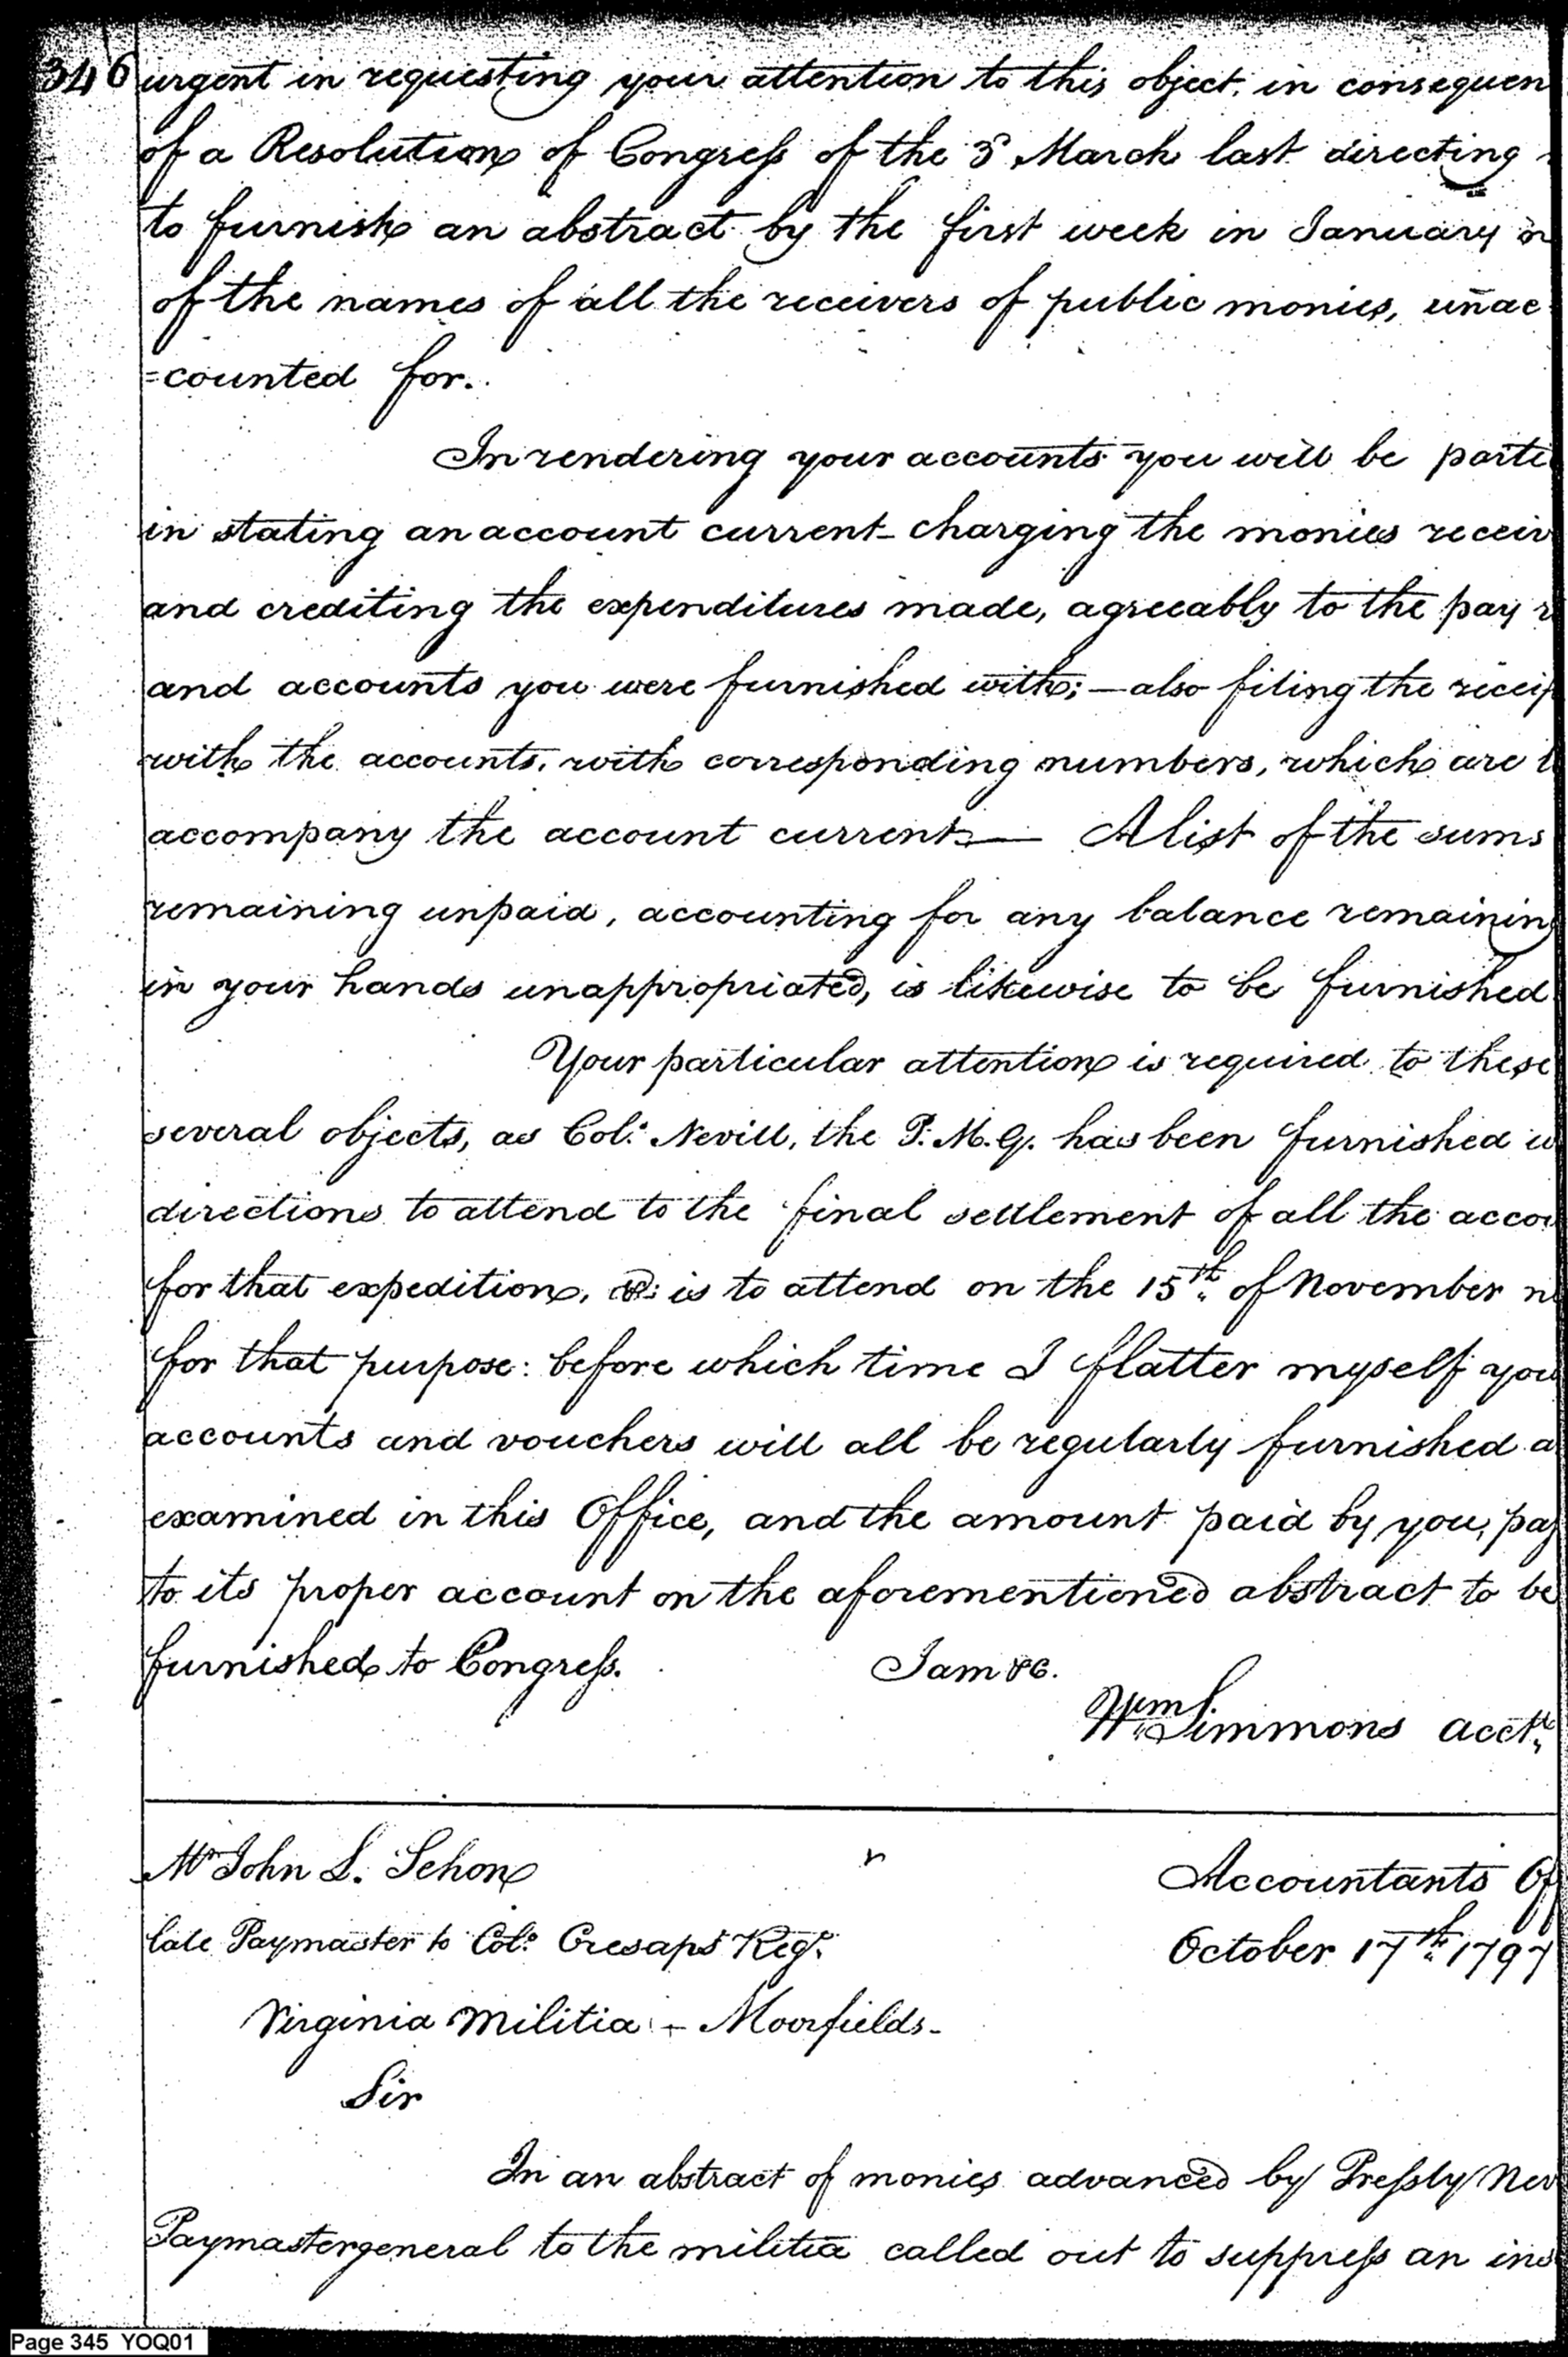 346 urgent in requesting your attention to this object. in consequen
of a Resolution of Congress of the 3d March last directing
to furnish an abstract by the first week in January
of the names of all the receivers of public monies, unac
=counted for.
In rendering your accounts you will be parti
in stating an account current charging the monies receiv
and crediting the expenditures made, agreeably to the pay r
and accounts you were furnished with; — also filing the receip
with the accounts, with corresponding numbers, which are t
accompany the account current — A list of the sums
remaining unpaid, accounting for any balance remaining
in your hands unappropriated, is likewise to be furnished
Your particular attention is required to these
several objects, as Col. Nevill, the P. M. G. has been furnished w
directions to attend to the final settlement of all the accou
for that expedition, & is to attend on the 15th of November ne
for that purpose: before which time I flatter myself you
accounts and vouchers will all be regularly furnished a
examined in this Office, and the amount paid by you, pas
to its proper account on the aforementioned abstract to be
furnished to Congress. I am &c.
Wm Simmons acctt
Mr John L. Sehon
Accountants Of
late Paymaster to Colo Cresaps Regt.
October 17th 1797
Virginia Militia - Moorfields -
Sir
In an abstract of monies advanced by Pressly Nev
Paymastergeneral to the militia called out to suppress an ins
Page 345 YOQ01